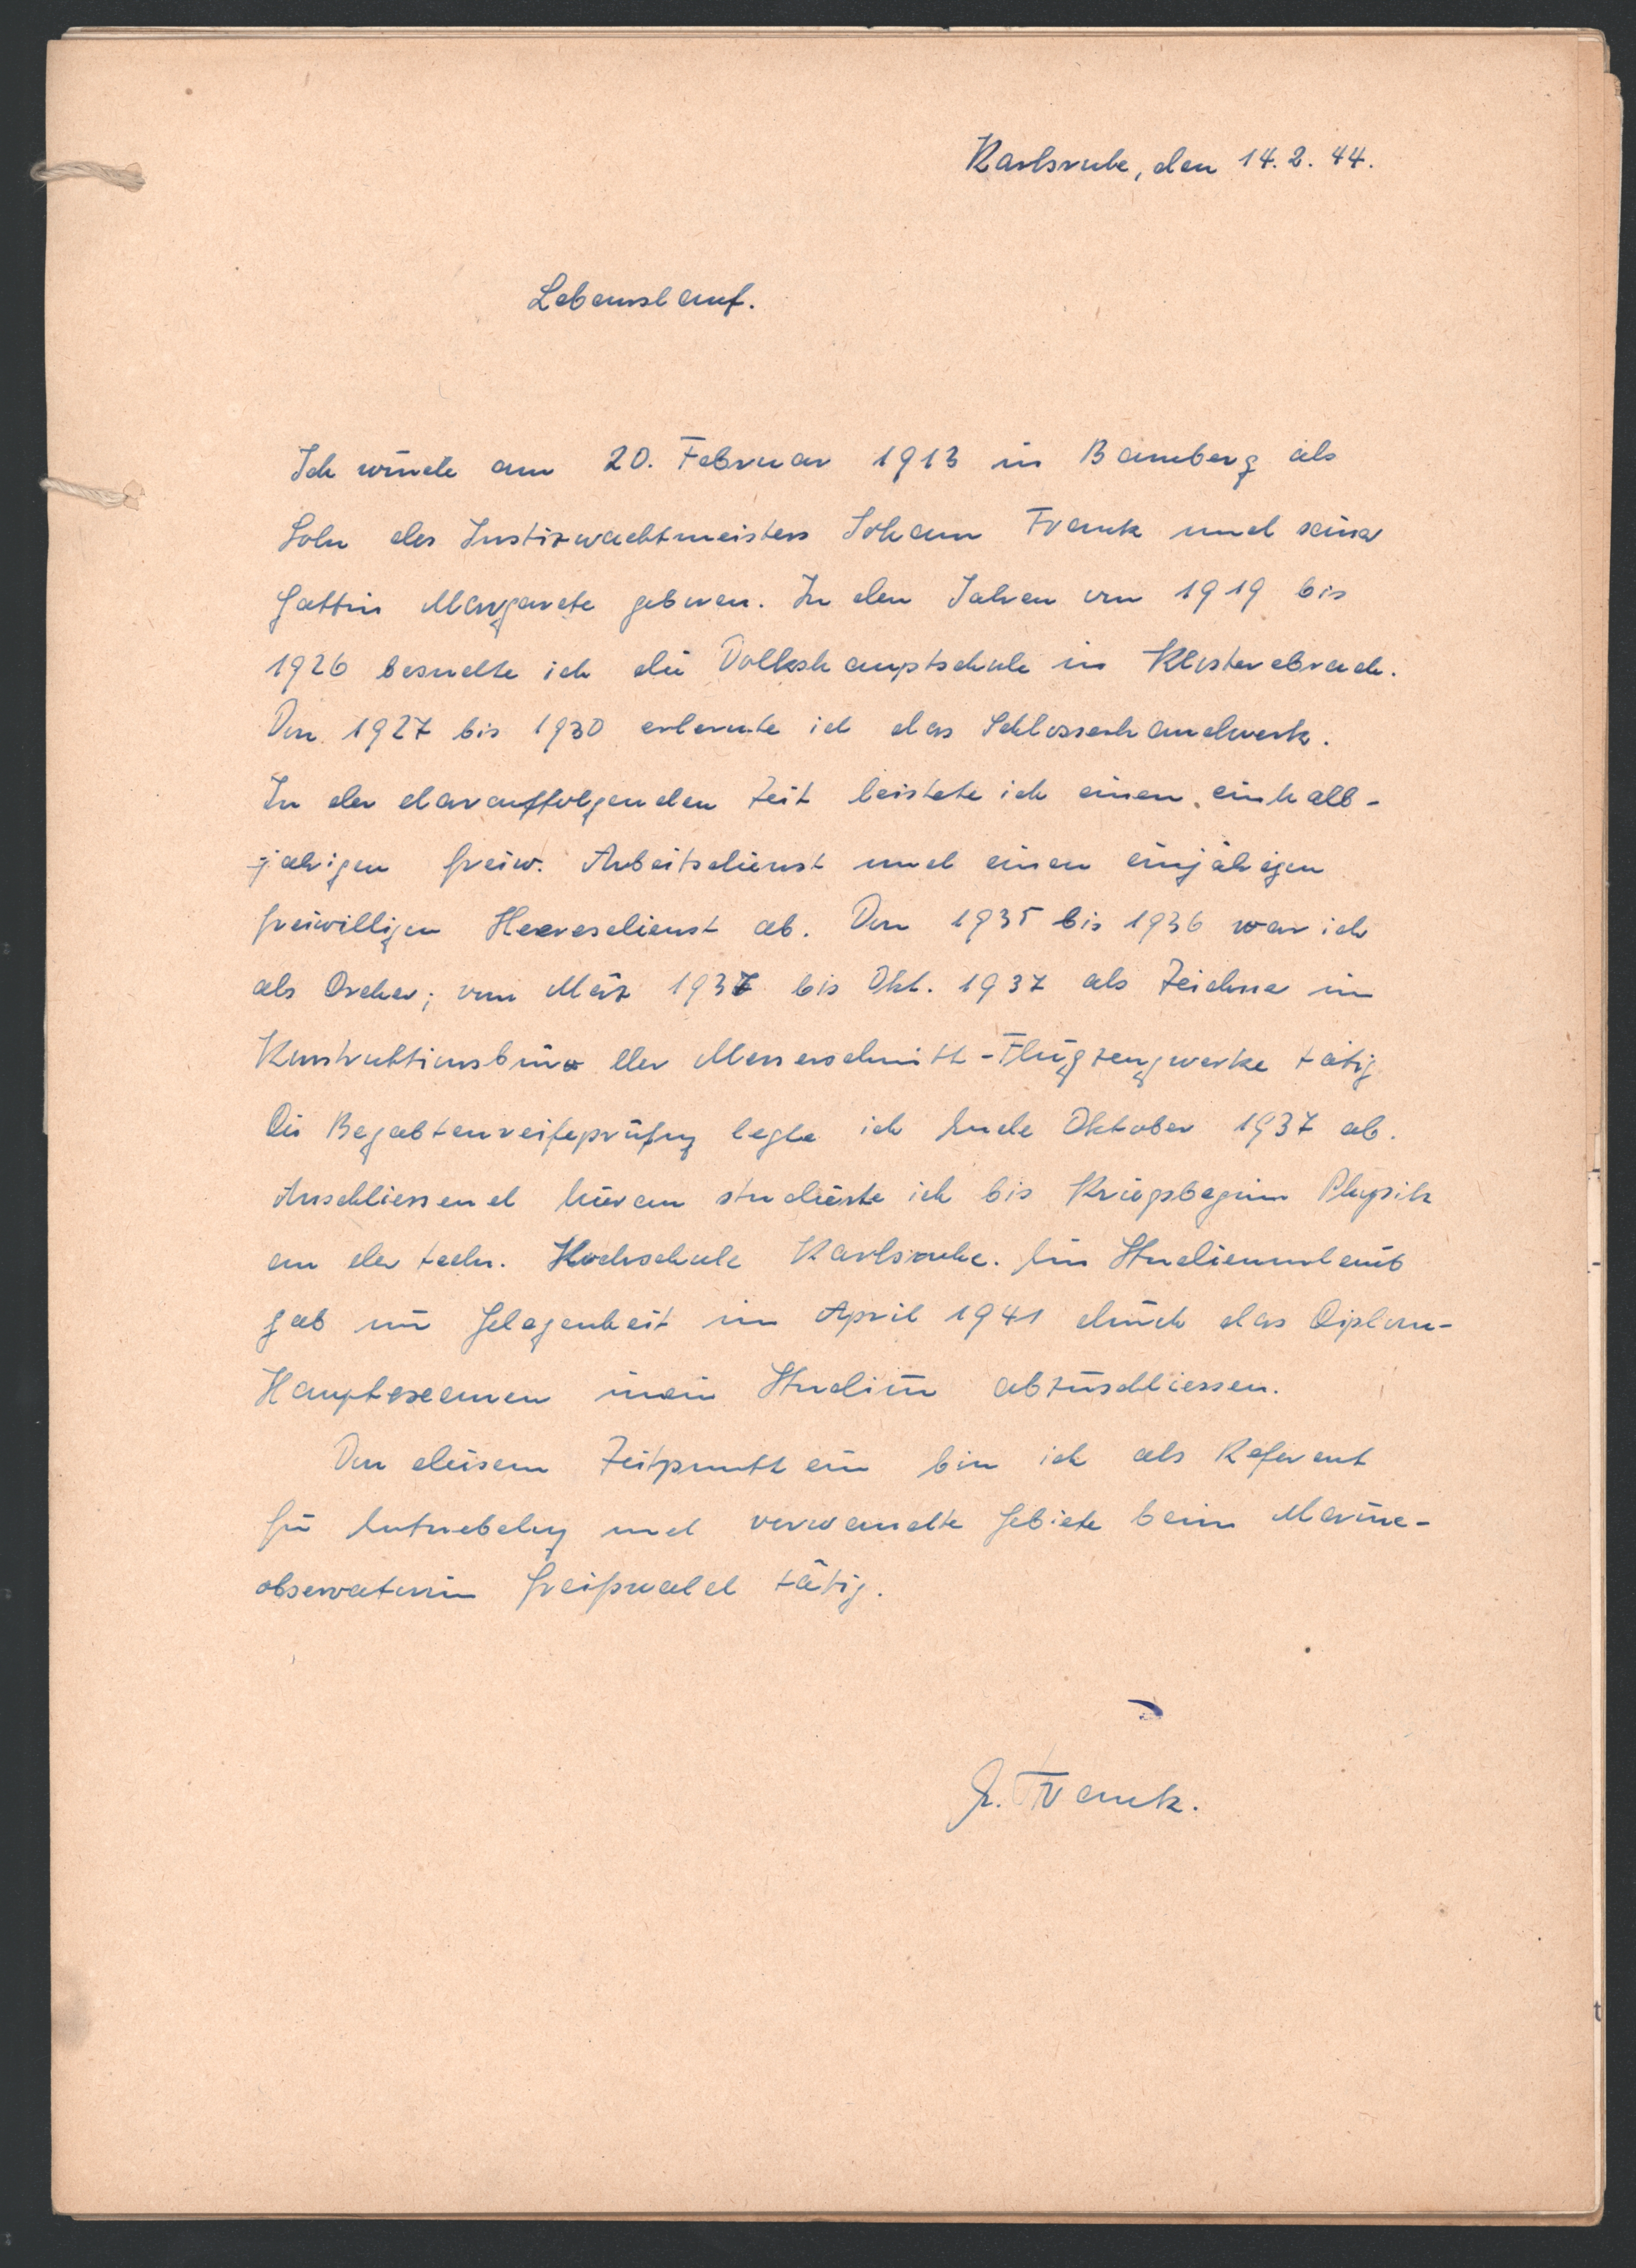 Karlsruhe, den 14.2.44.
Lebenslauf.
Ich wurde am 20. Februar 1913 in Bamberg als
Sohn des Justizwachtmeisters Johann Frank und seiner
Gattin Margarete geboren. In den Jahren von 1919 bis
1926 besuchte ich die Volkshauptschule in Klosterebrach.
Von 1927 bis 1930 erlernte ich das Schlosserhandwerk.
In der darauffolgenden Zeit leistete ich einen einhalb-
-jahrigen freiw. Arbeitsdienst und einen einjährigen
freiwilligen Heeresdienst ab. Von 1935 bis 1936 war ich
als Dreher; von März 1937 bis Okt. 1937 als Zeichner im
Konstruktionsbüro der Messerschmitt-Flugzeugwerke tätig
Die Begabtenreifeprüfung legte ich Ende Oktober 1937 ab.
Anschliessend hieran studierte ich bis Kriegsbeginn Physik
an der techn. Hochschule Karlsruhe. Ein Studienurlaub
gab mir Gelegenheit im April 1941 durch das Diplom-
Hauptexamen mein Studium abzuschliessen.
Von diesem Zeitpunkt ein bin ich als Referent
für Entnebelung und verwandte Gebiete beim Marine-
observatorium Greifswald tätig.
Frank.